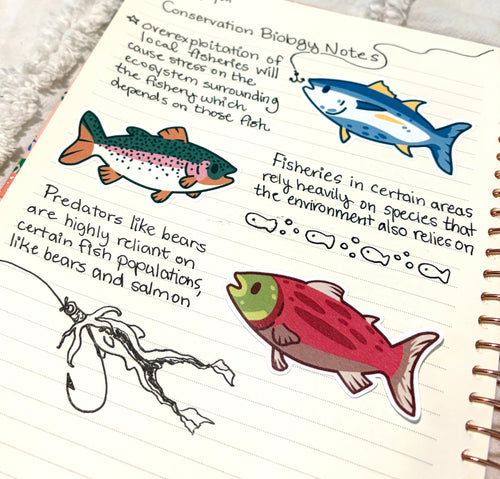 Conservation Biology Notes
☆ overexploitation of
local fisheries will
cause stress on the
ecosystem surrounding
the fishery which
depends on those fish
Fisheries in certain areas
rely heavily on species that
the environment also relies on
Predators like bears
are highly reliant on
certain fish populations,
like bears and salmon